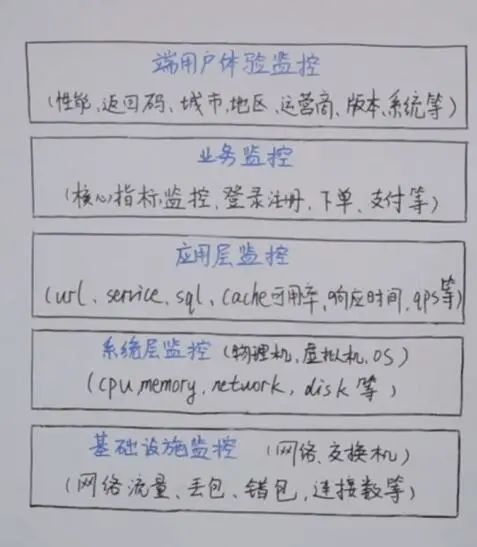 端用户体验监控
(性能、返回码、城市、地区、运营商、版本、系统等)
业务监控
(核心指标监控、登录注册、下单、支付等)
应用层监控
(url、service、sql、cache可用率、响应时间、qps等)
系统层监控 (物理机、虚拟机、OS)
(cpu、memory、network、disk 等)
基础设施监控 (网络、交换机)
(网络流量、丢包、错包、连接数等)